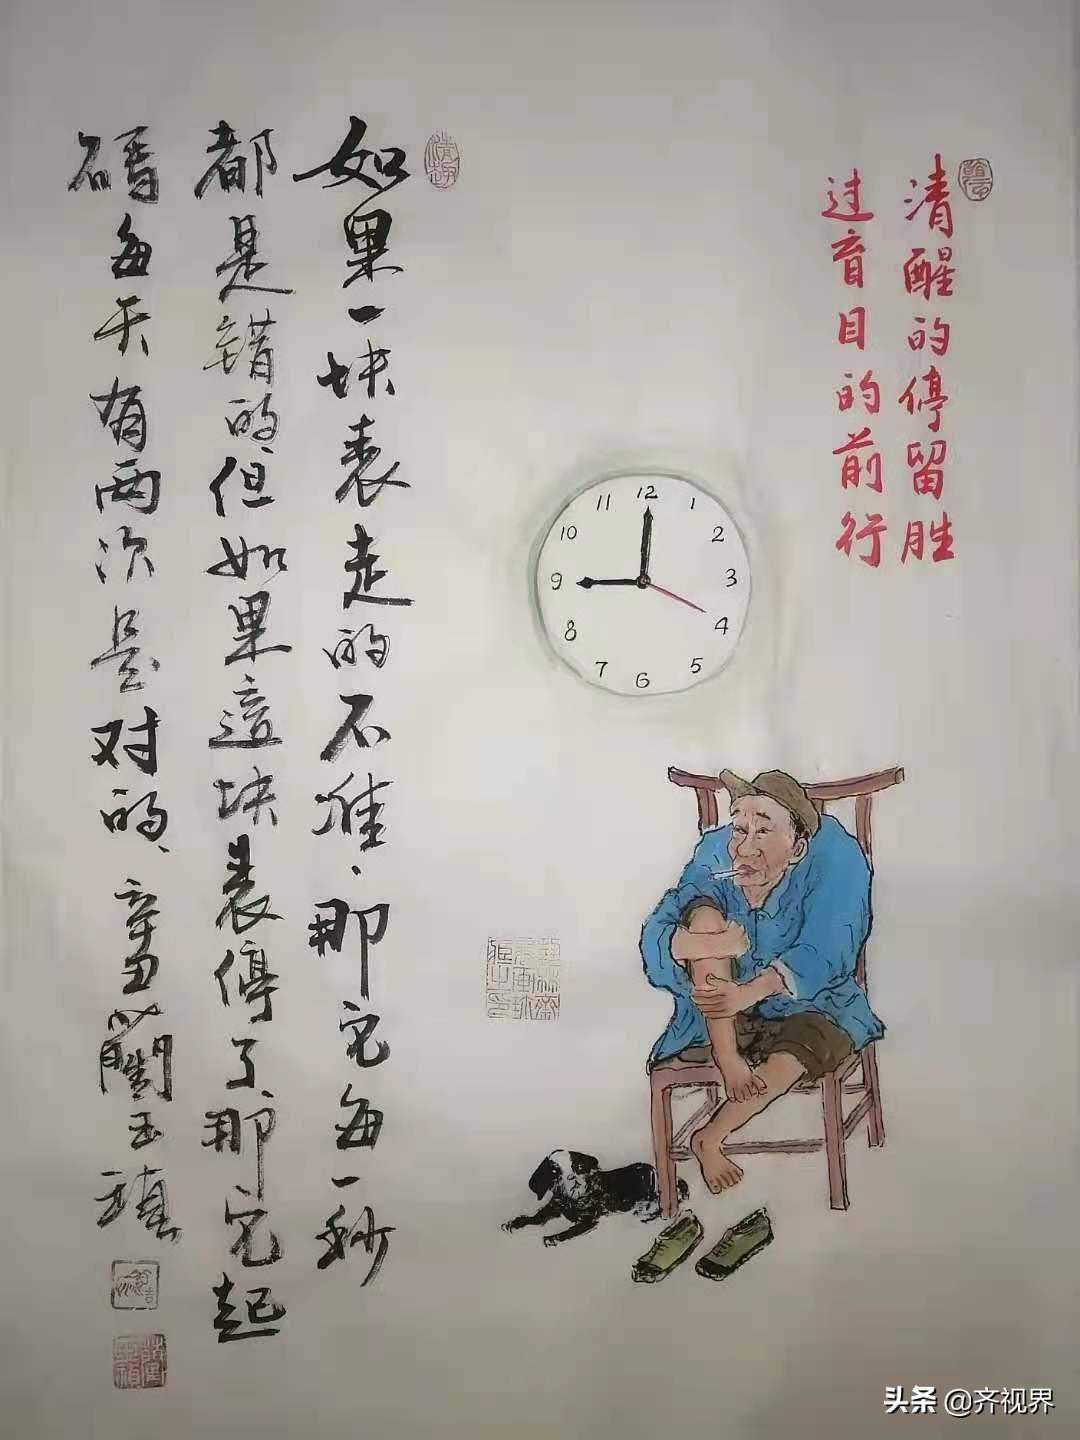 清醒的停留胜
过盲目的前行
如果一块表走的不准、那它每一秒
都是错的、但如果這块表停了、那它起
碼每天有两次是对的、辛丑藺玉
情趣
12
1
2
3
4
5
6
7
8
9
10
11
头条 @齐视界